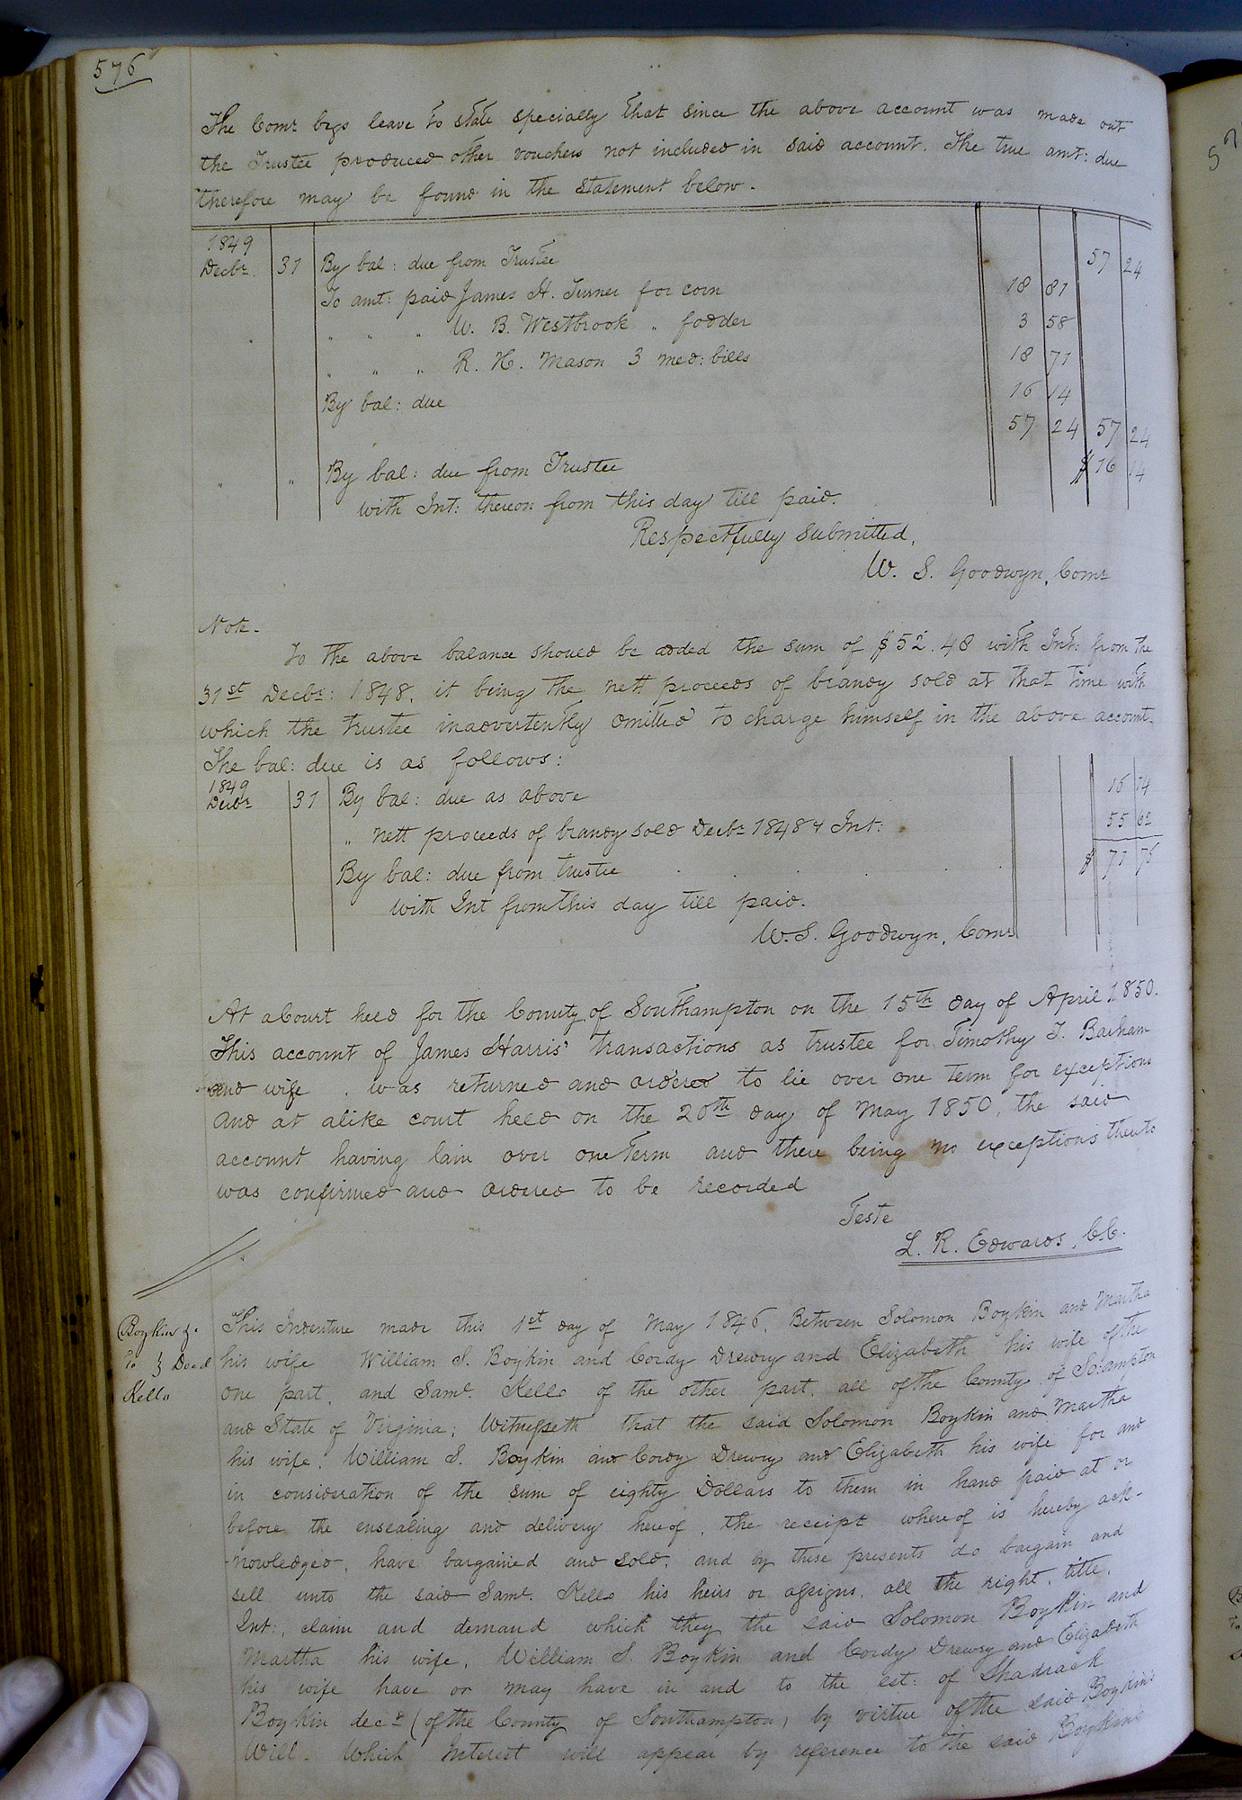 576
The Comr. begs leave to state specially that since the above account was made out
the Trustee produced other vouchers not included in said account. The true amt: due
therefore may be found in the statement below.
1849
Decbr. 31 By bal: due from Trustee 57 24
To amt: paid James H. Turner for corn 18 81
" " " W. B. Westbrook " fodder 3 58
" " " R. H. Mason 3 med: bills 18 71
By bal: due 16 14
57 24 57 24
" " By bal: due from Trustee $16 14
with Int: thereon from this day till paid.
Respectfully submitted,
W. S. Goodwyn, Comr.
Note.
To the above balance should be added the sum of $52.48 with Int: from the
31st Decbr: 1848, it being the nett proceeds of brandy sold at that time with
which the trustee inadvertently omitted to charge himself in the above account.
The bal: due is as follows:
1849
Decbr. 31 By bal: due as above 16 14
" nett proceeds of brandy sold Decbr. 1848 & Int: 55 62
By bal: due from trustee $ 71 76
with Int from this day till paid.
W. S. Goodwyn, Comr.
At a Court held for the County of Southampton on the 15th day of April 1850.
This account of James Harris' transactions as trustee for Timothy T. Barham
and wife, was returned and ordered to lie over one term for exceptions
And at alike court held on the 20th day of May 1850, the said
account having lain over one Term and there being no exceptions thereto
was confirmed and ordered to be recorded
Teste
L. R. Edwards, C.C.
Boykin &c.
to } Deed
Kello
This Indenture made this 1st day of May 1846, Between Solomon Boykin and Martha
his wife William S. Boykin and Cordy Drewry and Elizabeth his wife of the
one part, and Saml. Kello of the other part, all of the County of So:ampton
and State of Virginia; Witnesseth that the said Solomon Boykin and Martha
his wife, William S. Boykin and Cordy Drewry and Elizabeth his wife for and
in consideration of the sum of eighty Dollars to them in hand paid at or
before the ensealing and delivery hereof, the receipt whereof is hereby ack-
-nowledged, have bargained and sold, and by these presents do bargain and
sell unto the said Saml. Kello his heirs or assigns, all the right, title,
Int:, claim and demand which they the said Solomon Boykin and
Martha his wife, William S. Boykin and Cordy Drewry and Elizabeth
his wife have or may have in and to the est: of Shadrack
Boykin decd (of the County of Southampton) by virtue of the said Boykin's
Will. Which Interest will appear by reference to the said Boykin's